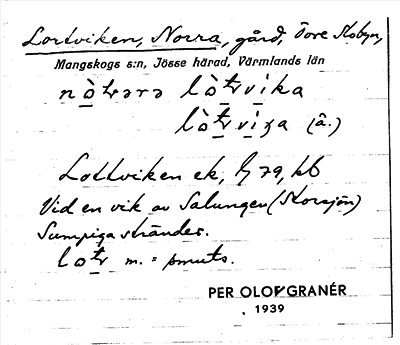 Lortviken, Norra, gård, Tore Skobyn,
Mangskogs s:n, Jösse härad, Värmlands län
nòtrərə lòtrvika
lòtrviʒa (ä.)
Lottviken ek, 79, hb
Vid en vik av Salungen (Storsjön)
Sumpiga stränder.
lotr m. = smuts.
PER OLOF GRANÉR
1939